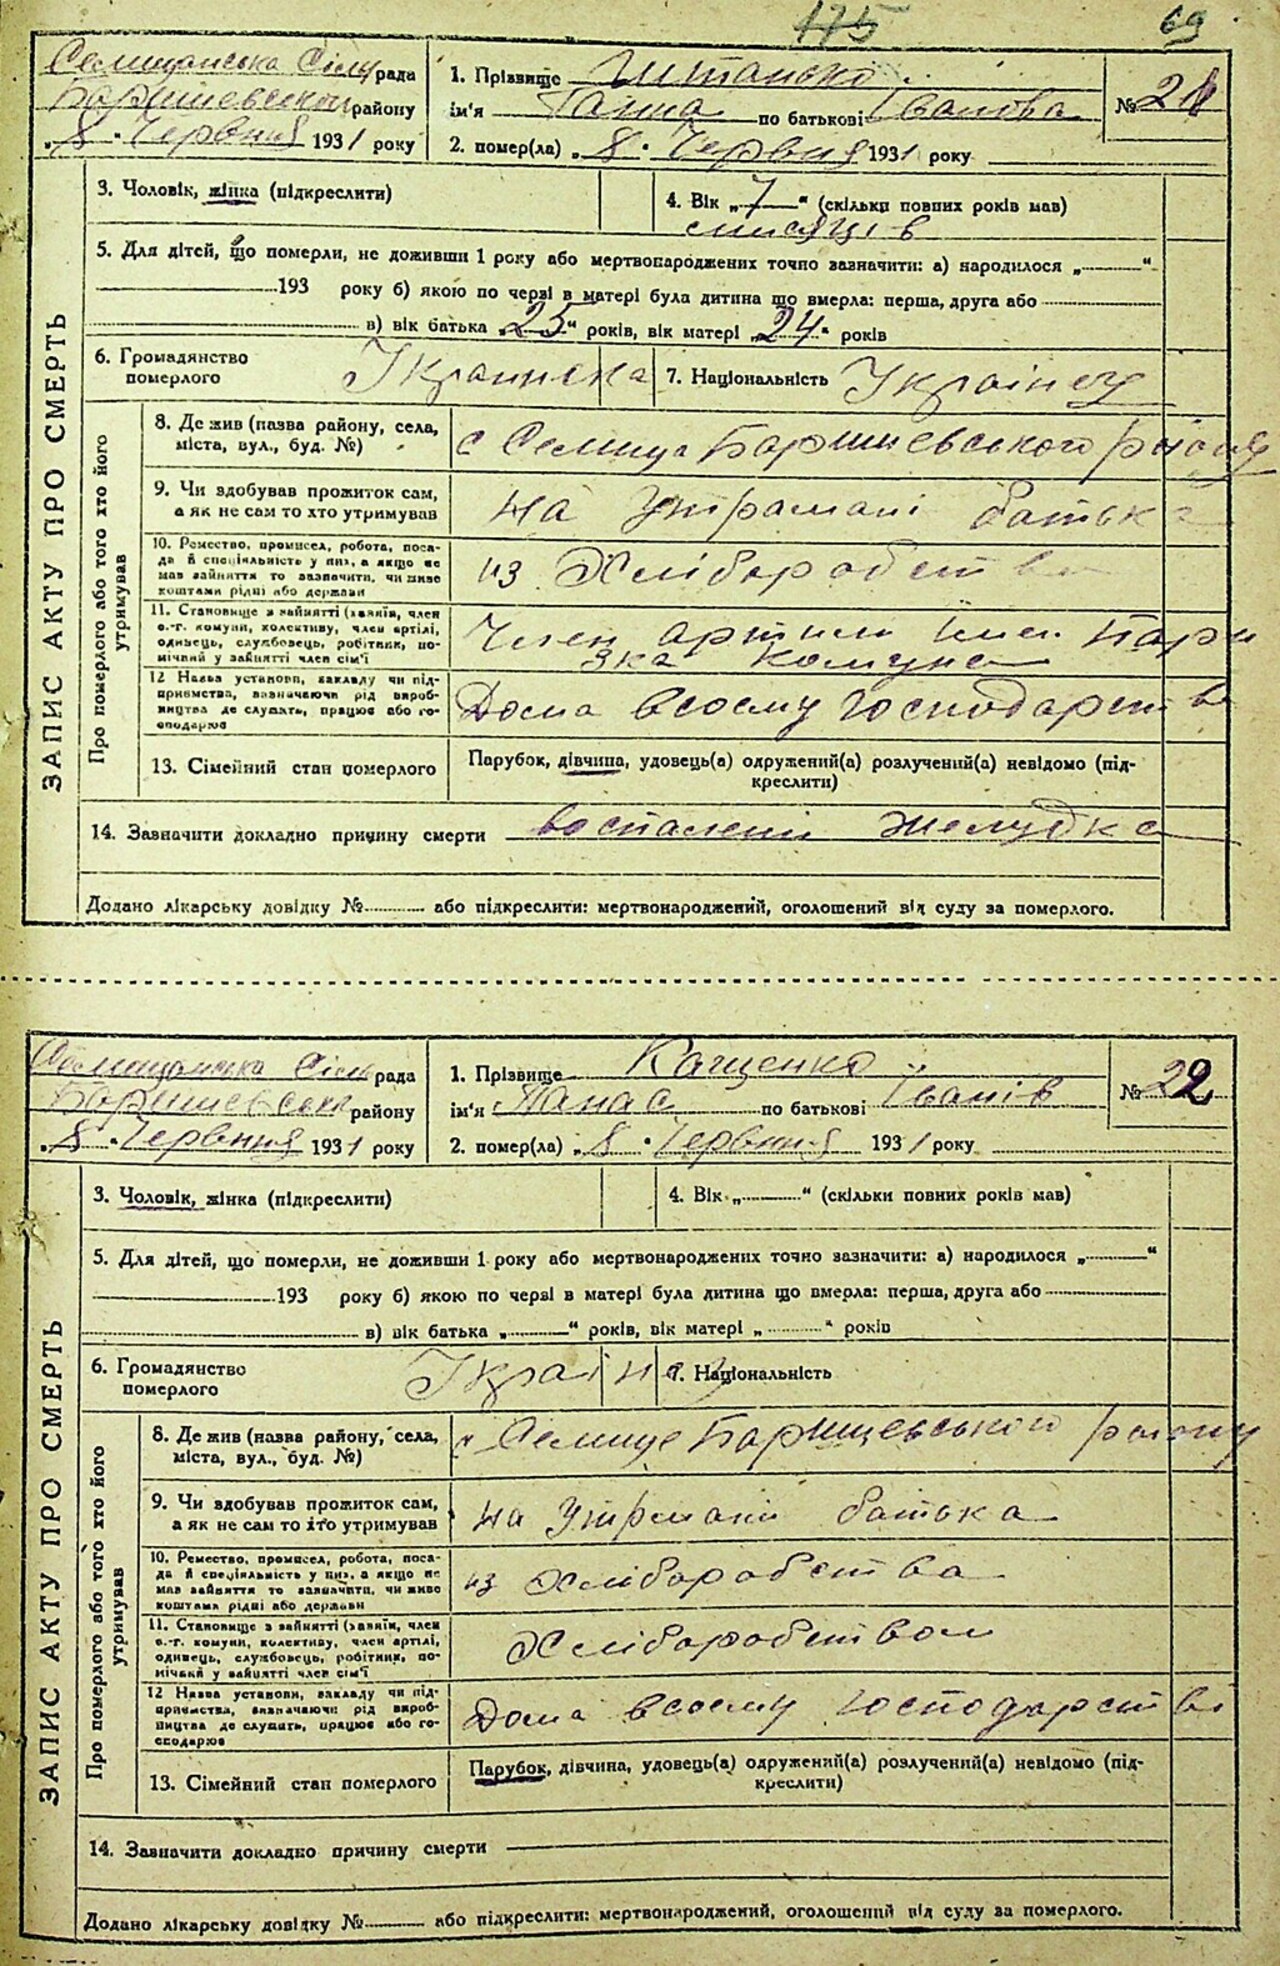 175 69
Селищанська Сільрада
Баришевського району
"8" Червня 1931 року
1. Прізвище Штанько
ім'я Ганна по батькові Іванова
2. помер(ла) "8" Червня 1931 року
№ 21
3. Чоловік, жінка (підкреслити)
4. Вік "7" (скільки повних років мав)
місяців
5. Для дітей, що померли, не доживши 1 року або мертвонароджених точно зазначити: а) народилося "------"
193 року б) якою по черзі в матері була дитина що вмерла: перша, друга або
в) вік батька "25" років, вік матері "24" років
6. Громадянство
померлого
Украинска
7. Національність Украінец
ЗАПИС АКТУ ПРО СМЕРТЬ
Про померлого або того хто його
утримував
8. Де жив (назва району, села,
міста, вул., буд. №)
с Селище Баришевського району
9. Чи здобував прожиток сам,
а як не сам то хто утримував
на утримані батька
10. Ремество, промисел, робота, поса-
да й спеціяльність у них, а якщо не
мав зайняття то зазначити, чи живе
коштами рідні або держави
из Хліборобства
11. Становище в зайнятті (хазяїн, член
с.-г. комуни, колективу, член артілі,
одинець, службовець, робітник, по-
мічний у зайнятті член сім'ї
Член артили Імен Пари
зка комуна
12 Назва установи, закладу чи під-
приємства, визначаючи рід вироб-
ництва де служить, працює або го-
сподарює
Дома всоему господарстві
13. Сімейний стан померлого
Парубок, дівчина, удовець(а) одружений(а) розлучений(а) невідомо (під-
креслити)
14. Зазначити докладно причину смерти воспалени желудка
Додано лікарську довідку № або підкреслити: мертвонароджений, оголошений від суду за померлого.
Селищанська Сільрада
Баришевсько району
"8" Червня 1931 року
1. Прізвище Кащенко
ім'я Панас по батькові Іванів
2. помер(ла) "8" Червня 1931 року
№ 22
3. Чоловік, жінка (підкреслити)
4. Вік "------" (скільки повних років мав)
5. Для дітей, що померли, не доживши 1 року або мертвонароджених точно зазначити: а) народилося "------"
193 року б) якою по черзі в матері була дитина що вмерла: перша, друга або
в) вік батька "------" років, вік матері "------" років
6. Громадянство
померлого
Украінец
7. Національність
ЗАПИС АКТУ ПРО СМЕРТЬ
Про померлого або того хто його
утримував
8. Де жив (назва району, села,
міста, вул., буд. №)
с Селище Баришевського району
9. Чи здобував прожиток сам,
а як не сам то хто утримував
на утрмані батька
10. Ремество, промисел, робота, поса-
да й спеціяльність у них, а якщо не
мав зайняття то зазначити, чи живе
коштами рідні або держави
из Хліборобства
11. Становище в зайнятті (хазяїн, член
с.-г. комуни, колективу, член артілі,
одинець, службовець, робітник, по-
мічний у зайнятті член сім'ї
Хліборобством
12 Назва установи, закладу чи під-
приємства, визначаючи рід вироб-
ництва де служить, працює або го-
сподарює
Дома всоему господарстві
13. Сімейний стан померлого
Парубок, дівчина, удовець(а) одружений(а) розлучений(а) невідомо (під-
креслити)
14. Зазначити докладно причину смерти
Додано лікарську довідку № або підкреслити: мертвонароджений, оголошений від суду за померлого.